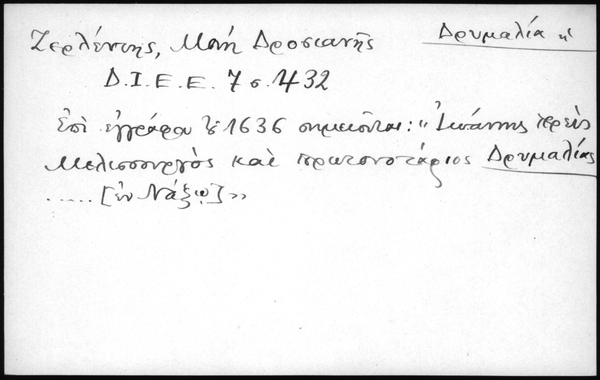 Δρυμαλία ἡ
Ζερλέντης, Μονή Δροσιανῆς
Δ.Ι.Ε.Ε. 7 σ. 432
Ἐπὶ ἐγγράφου τοῦ 1636 σημειοῦται: "Ἰωάννης ἱερεὺς
Μελισσουργὸς καὶ πρωτονοτάριος Δρυμαλίας
..... [ἐν Νάξῳ]"